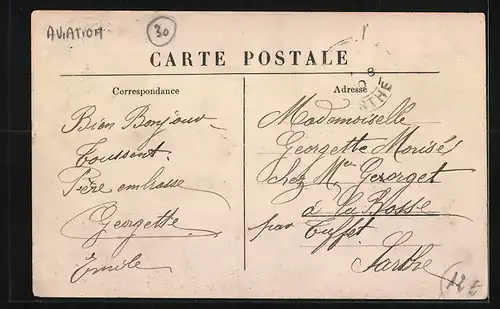 AVIATION
30
CARTE POSTALE
Correspondance
Bien Bonjour
Toussent.
Père embrasse
Georgette
Emile
Adresse
Mademoiselle
Georgette Mousé
chez Mr Georget
à La Bosse
par Tuffé
Sarthe
12€